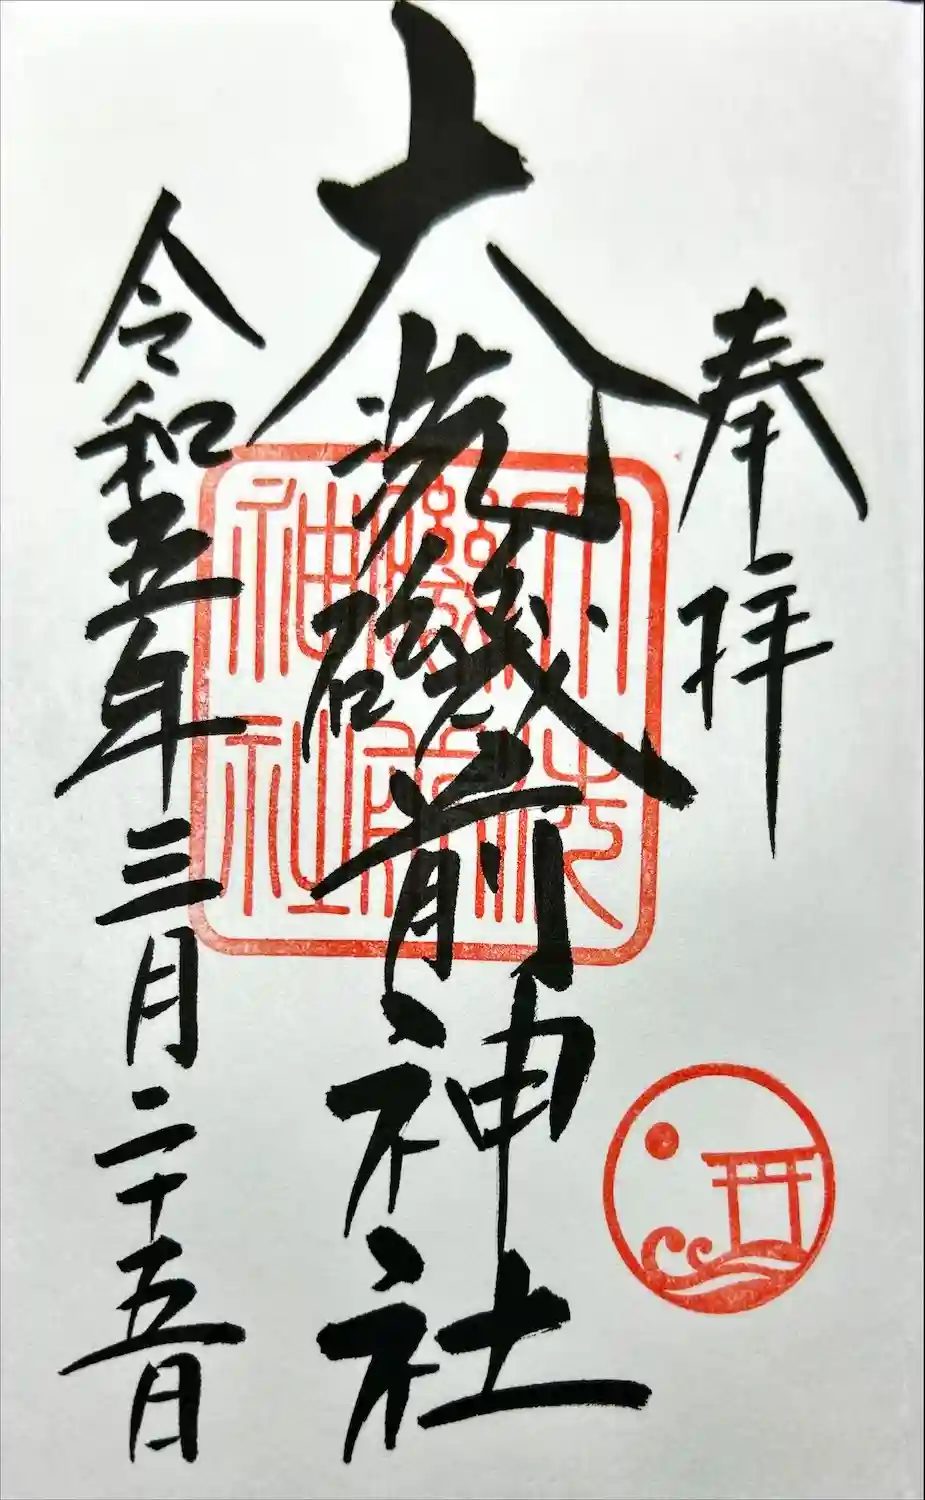 奉拝
大洗磯前神社
令和五年三月二十五日
大洗
磯前
神社